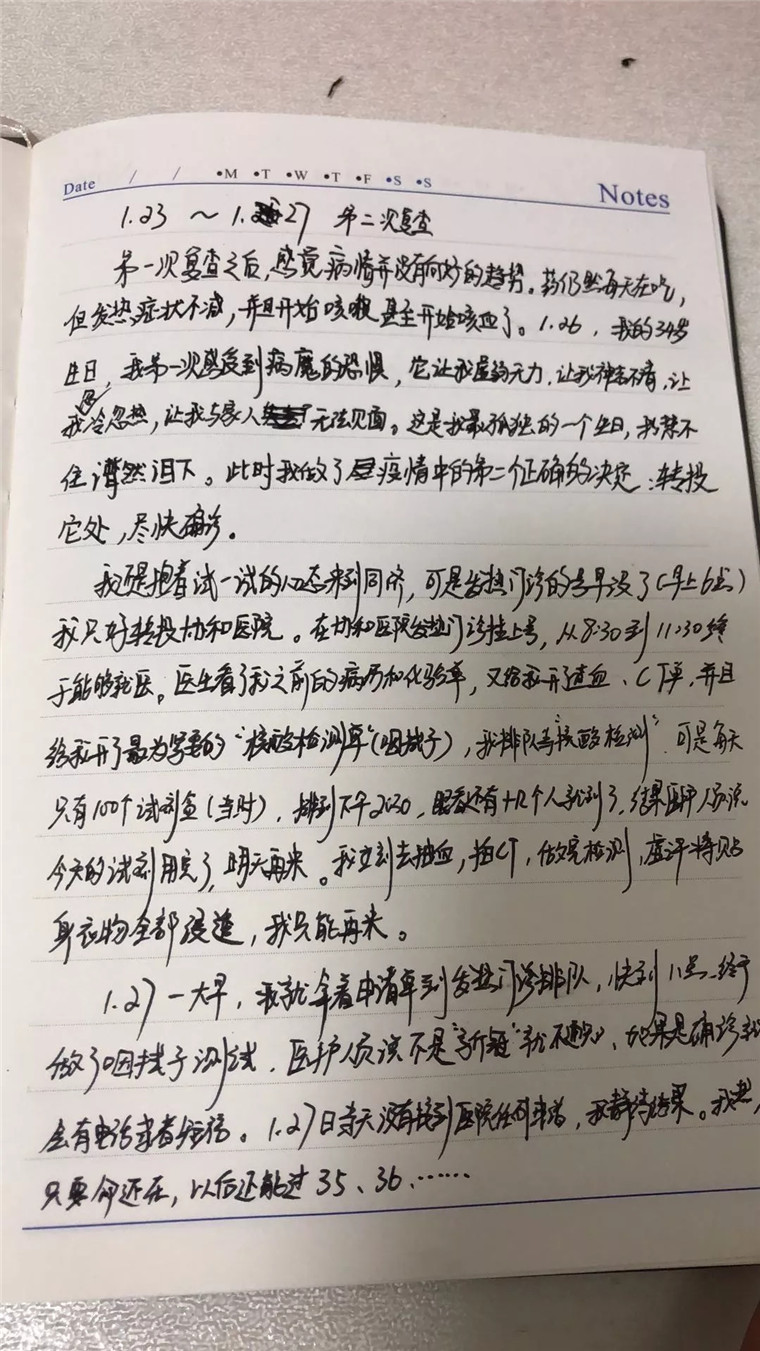 Date / / •M •T •W •T •F •S •S Notes
1.23 ～1.27 第二次复查
第一次复查之后,感觉病情并没有向好的趋势。药仍然每天在吃,
但发热症状不减,并且开始咳嗽甚至开始咳血了。1.26，我的34岁
生日，我第一次感受到病魔的恐惧，它让我虚弱无力,让我神志不清,让
我忽冷忽热,让我与家人无法见面。这是我最孤独的一个生日,我禁不
住潸然泪下。此时我做了疫情中的第二个正确的决定:转投
它处,尽快确诊。
我还是抱着试一试的心态来到同济，可是发热门诊的号早没了(早上6点)
我只好转投协和医院。在协和医院发热门诊挂上号，从8:30到11:30终
于能够就医。医生看了我之前的病历和化验单，又给我开了血、CT单,并且
给我开了最为紧要的"核酸检测单"(咽拭子)，我排队等"核酸检测"，可是每天
只有100个试剂盒(当时)，排到下午，眼看还有十几个人就到了,结果医护人员说
今天的试剂用完了,明天再来。我立刻去抽血,拍CT,做完检测,虚汗将贴
身衣物全部浸透,我只能再来。
1.27一大早，我就拿着申请单到发热门诊排队，快到11点终于
做了咽拭子测试，医护人员说不是"新冠"就不通知、如果是确诊就
会有电话或者短信。1.27日当天没有接到医院任何来电，我静待结果。
只要命还在，以后还能过35、36、……